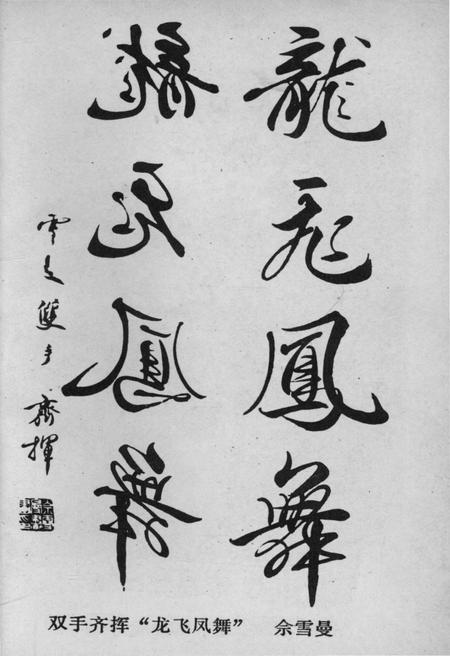 龍飛鳳舞
龍飛鳳舞
雪 雙手齊揮
双手齐挥“龙飞凤舞” 佘雪曼